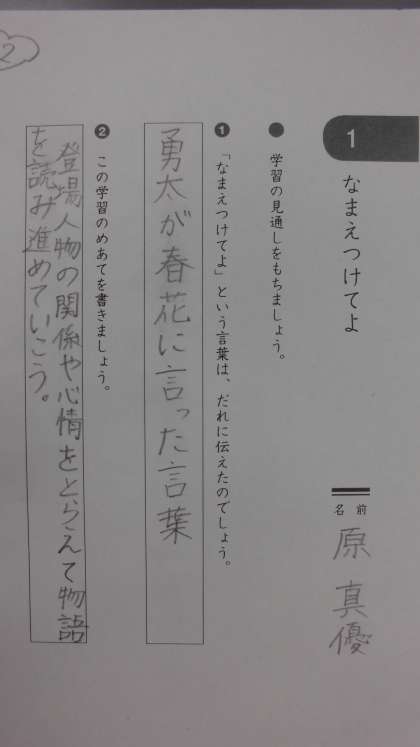 1
なまえつけてよ
名前
原真優
● 学習の見通しをもちましょう。
❶ 「なまえつけてよ」という言葉は、だれに伝えたのでしょう。
勇太が春花に言った言葉
❷ この学習のめあてを書きましょう。
登場人物の関係や心情をとらえて物語
を読み進めていこう。
2